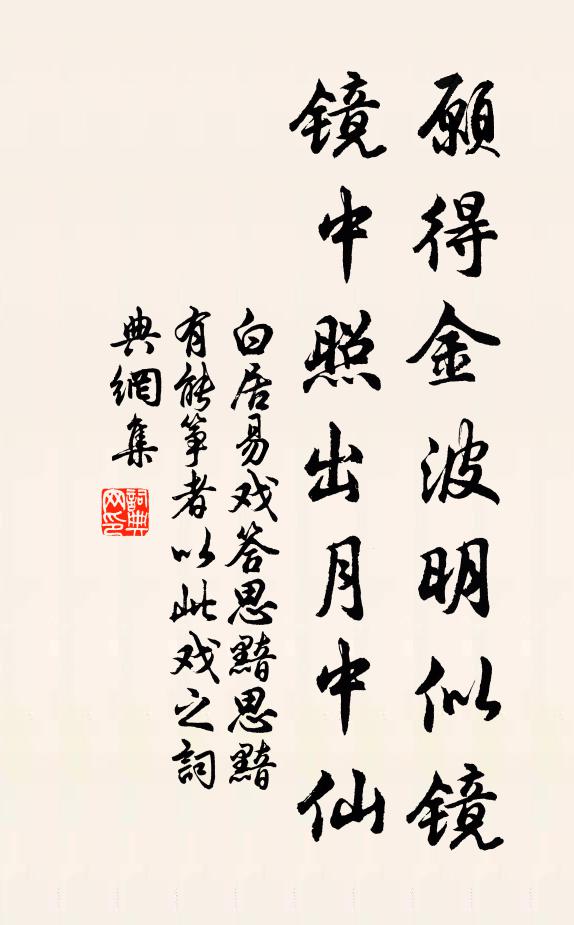 願得金波明似鏡
鏡中照出月中仙
白居易戏答思黯思黯
有能筝者以此戏之詞
典網集
詞典
网印